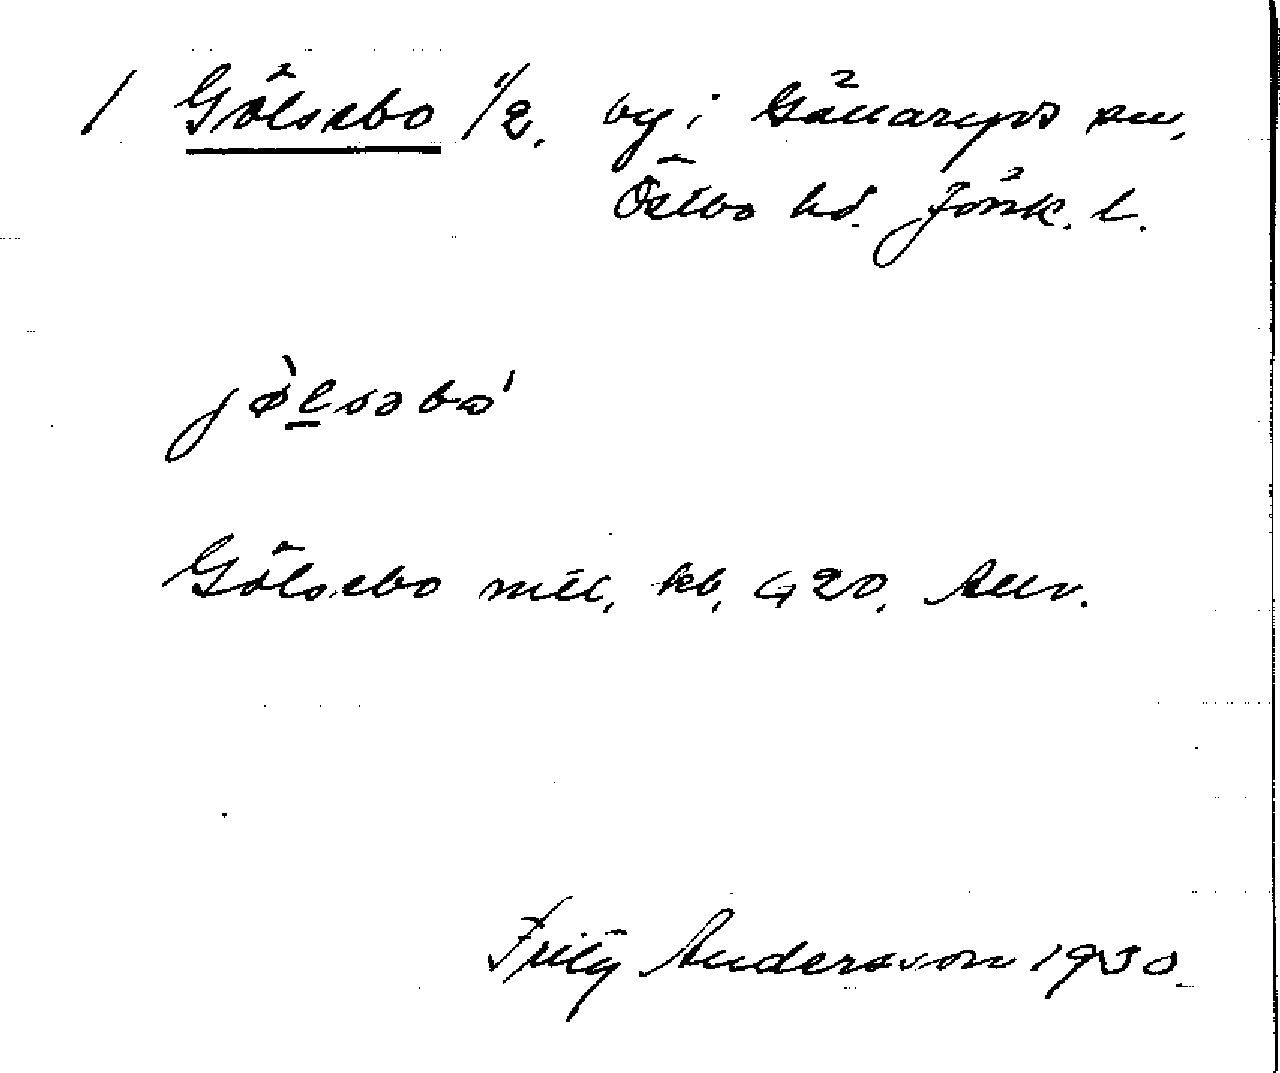 / Gölsebo 1/2. by i Gällaryds sn,
Östbo hd. Jönk. l.
jø̀lsəbo'
Gölsebo mtl. kb, G 20.
Fritz Andersson 1930.